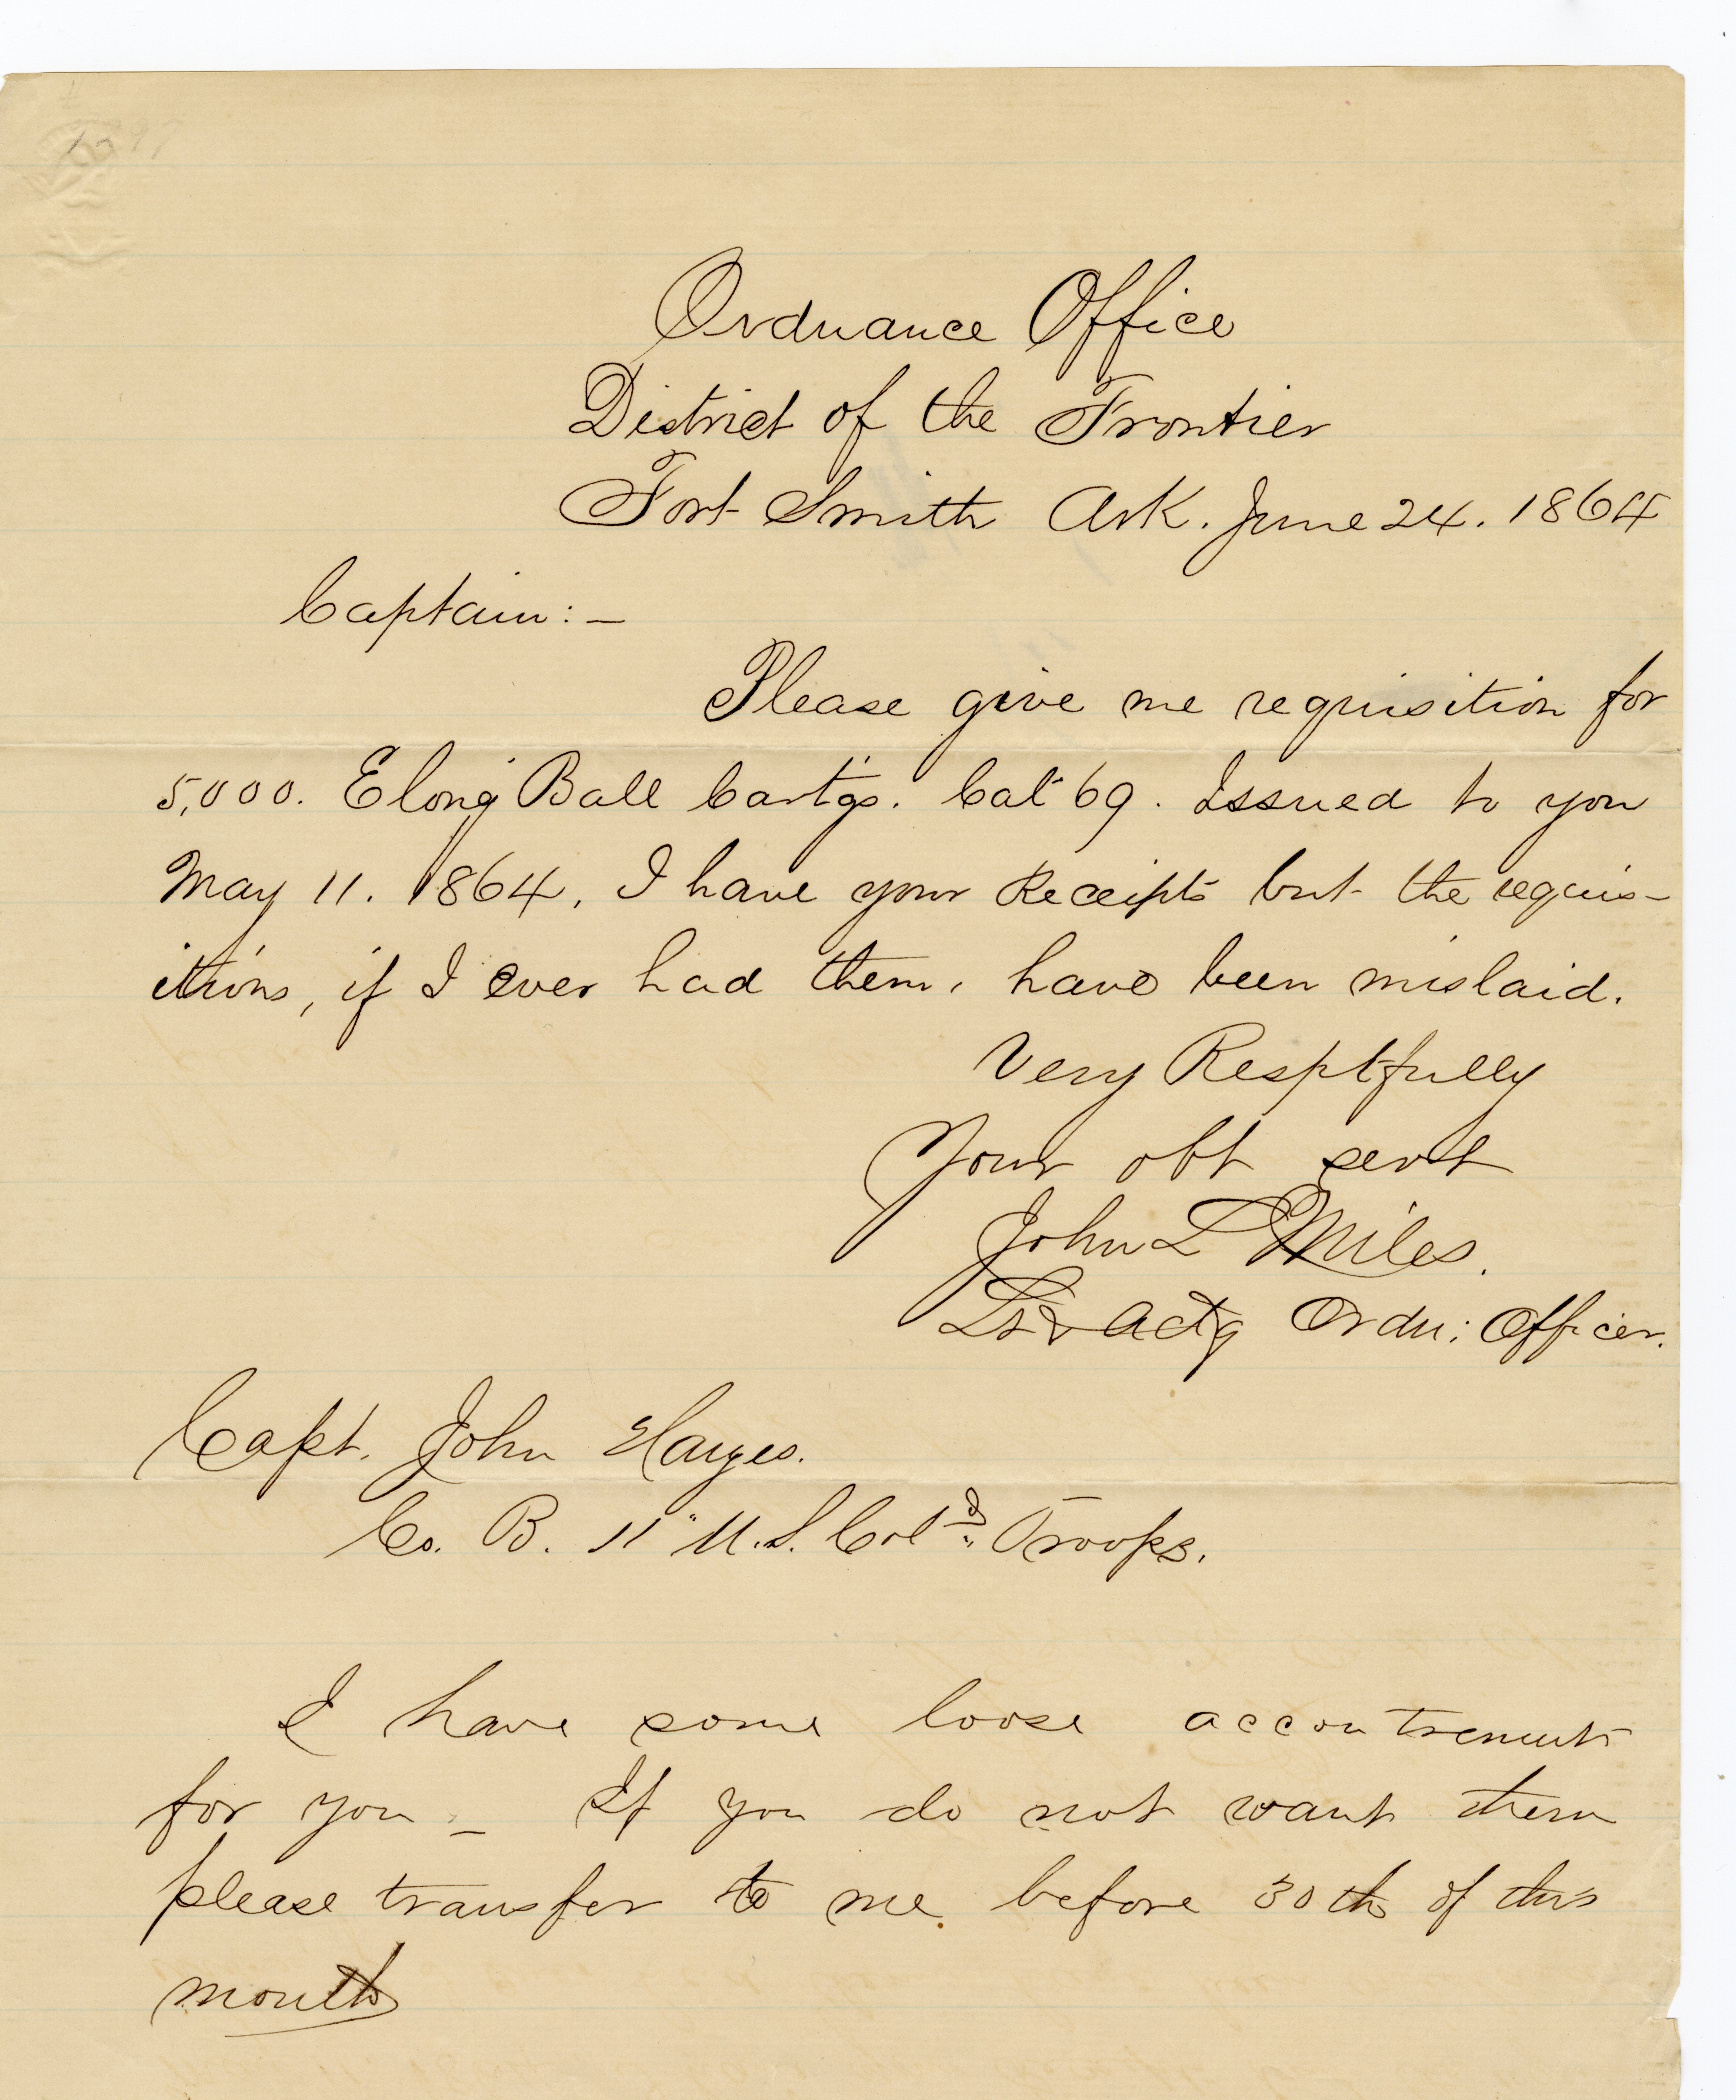 Ordnance Office
District of the Frontier
Fort Smith Ark. June 24. 1864
Captain:—
Please give me requisition for
5,000. Elong Ball Cartgs. Cal 69. Issued to you
May 11. 1864, I have your Receipts but the requis-
itions, if I ever had them, have been mislaid.
Very Resptfully
Your obt servt
John L Miles.
Lt & Actg Ordn: Officer.
Capt. John Hayes.
Co. B. 11" U.S. Cold Troops.
I have some loose accoutrements
for you — If you do not want them
please transfer to me before 30th of this
month